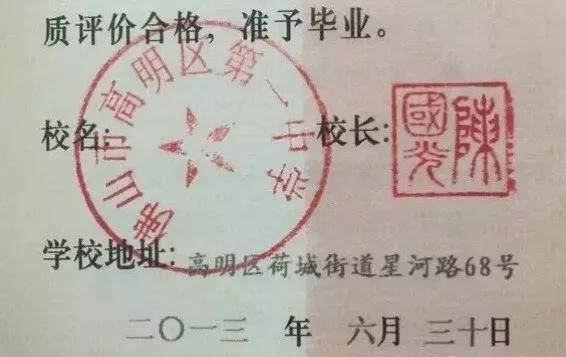 质评价合格，准予毕业。
校名:
佛山市高明区第一中学
校长:
陳國光
学校地址: 高明区荷城街道星河路68号
二〇一三 年 六月 三十日